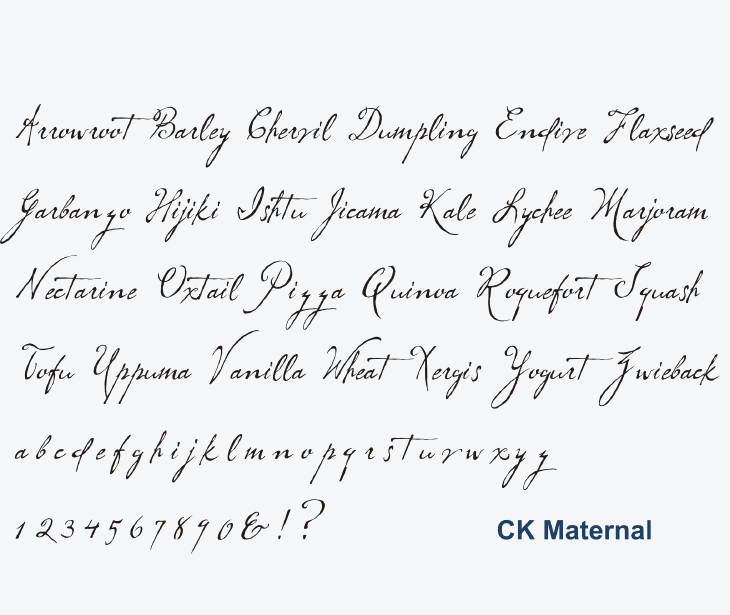 Arrowroot Barley Chervil Dumpling Endive Flaxseed
Garbanzo Hijiki Ishtu Jicama Kale Lychee Marjoram
Nectarine Oxtail Pizza Quinoa Roquefort Squash
Tofu Uppuma Vanilla Wheat Xergis Yogurt Zwieback
a b c d e f g h i j k l m n o p q r s t u v w x y z
1 2 3 4 5 6 7 8 9 0 & ! ?
CK Maternal